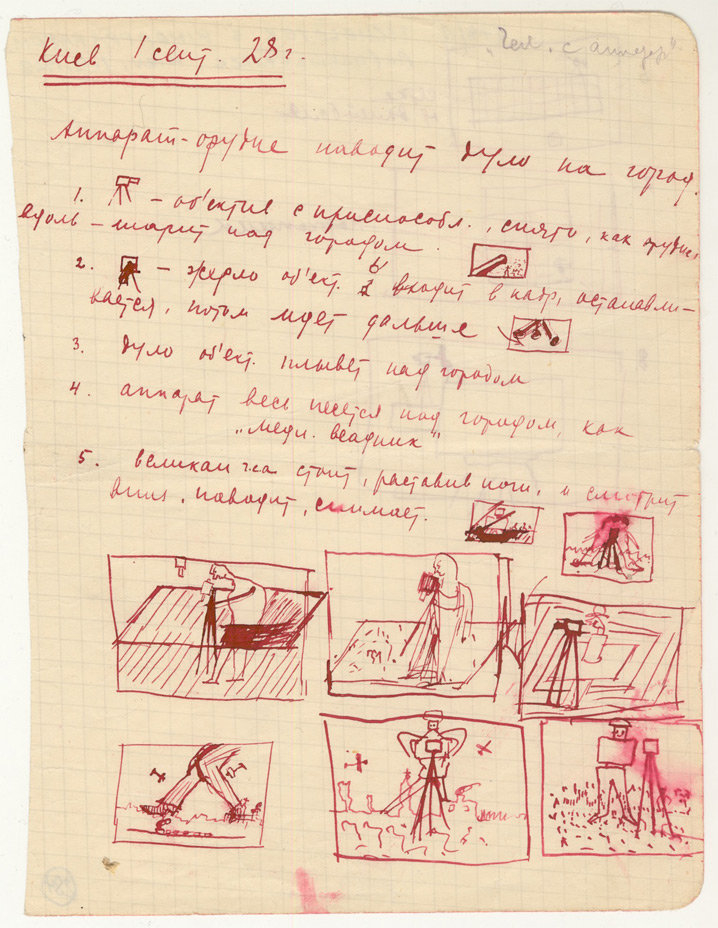 „Чел. с аппар."
Киев 1 сент. 28 г.
Аппарат-орудие наводит дуло на город.
1. – об'ектив с приспособл., снято, как орудие,
вдоль – шарит над городом.
2. – жерло об'ект. входит в кадр, останавли-
вается, потом идет дальше
3. дуло об'ект. плывет над городом
4. аппарат весь несется над городом, как
„медн. всадник"
5. великан стоит, раставив ноги, и смотрит
вниз, наводит, снимает.